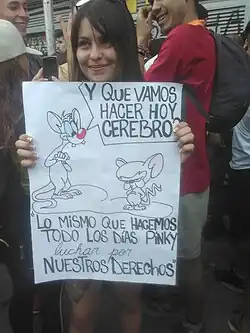 Y QUE VAMOS
HACER HOY
CEREBRO?
LO MISMO QUE HACEMOS
TODO LOS DÍAS PINKY
luchar por
NUESTROS DERECHOS"